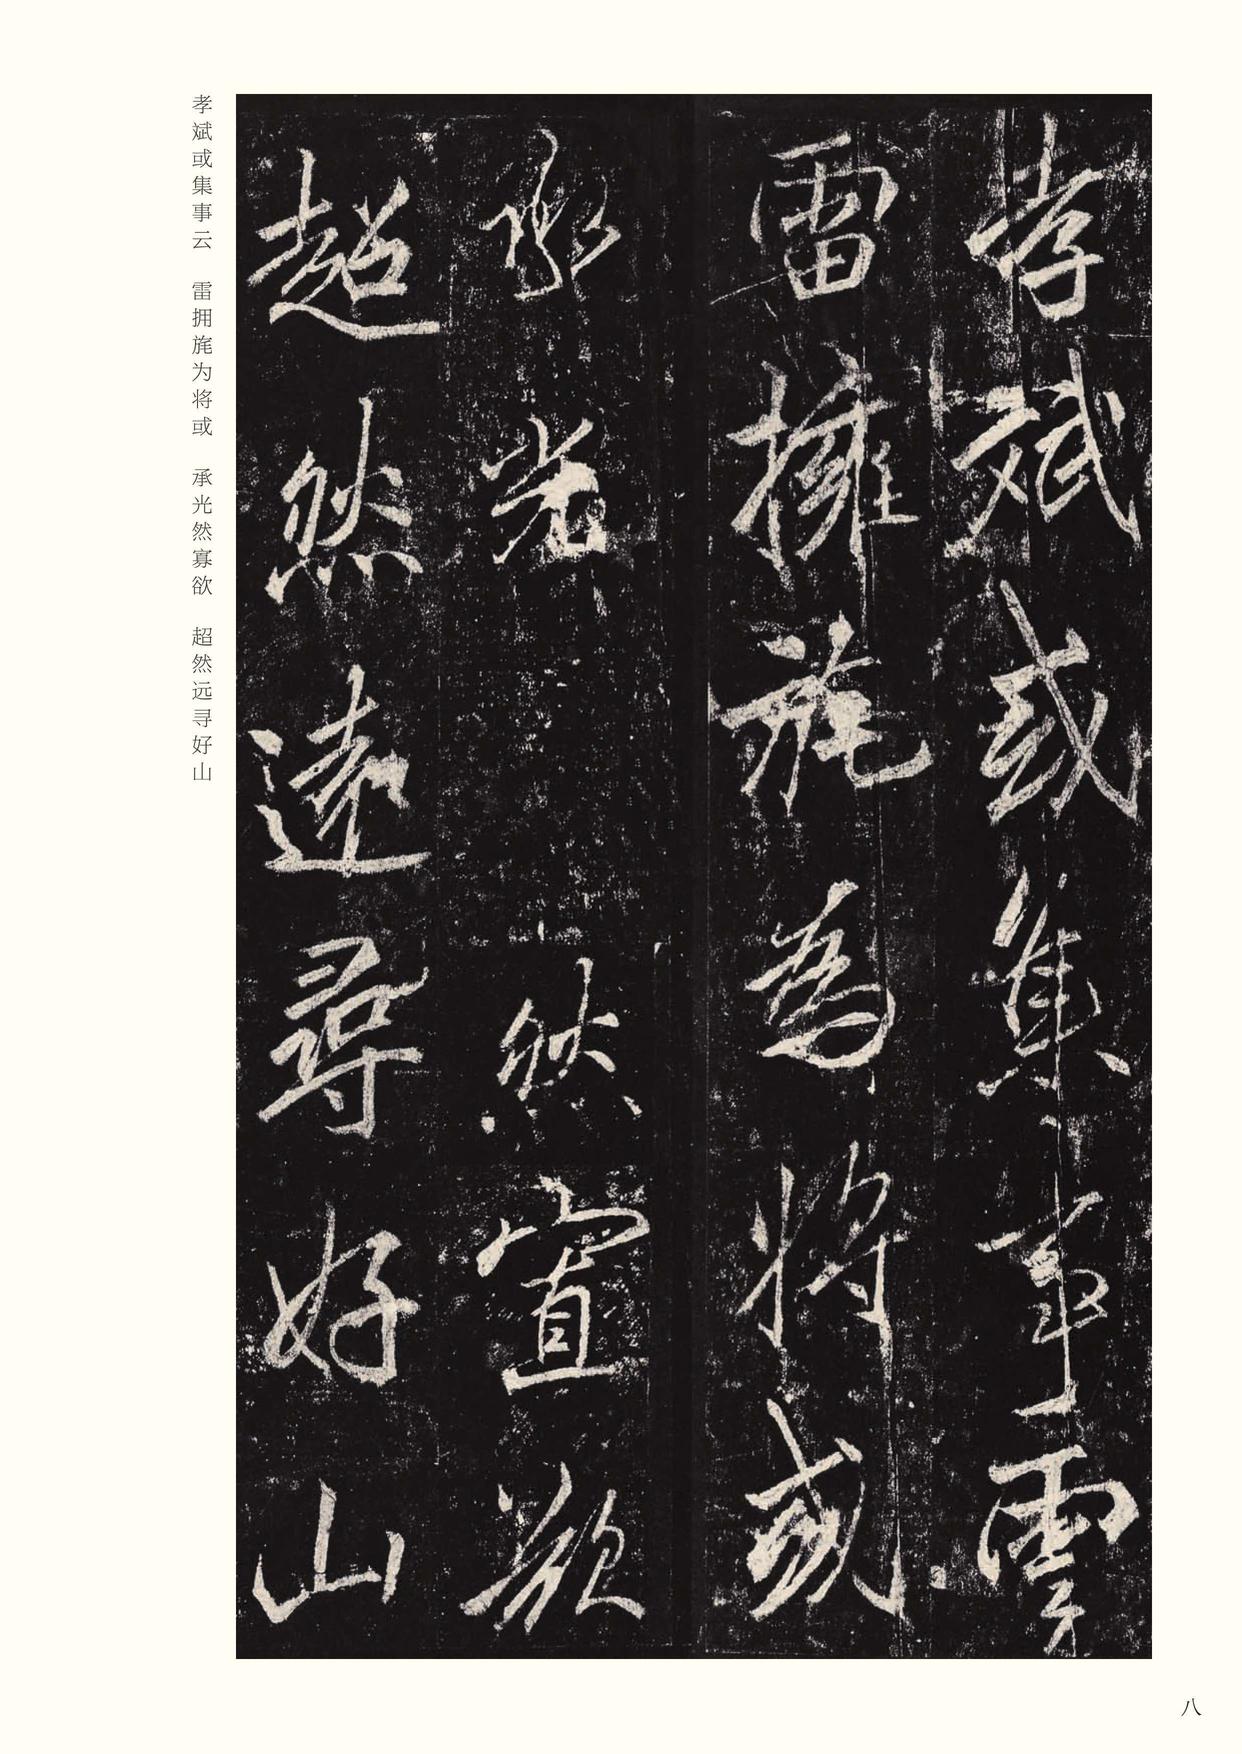 孝斌或集事雲
雷擁旄為將或
承光然寡欲
超然遠尋好山
孝斌或集事云　雷拥旄为将或　承光然寡欲　超然远寻好山
八